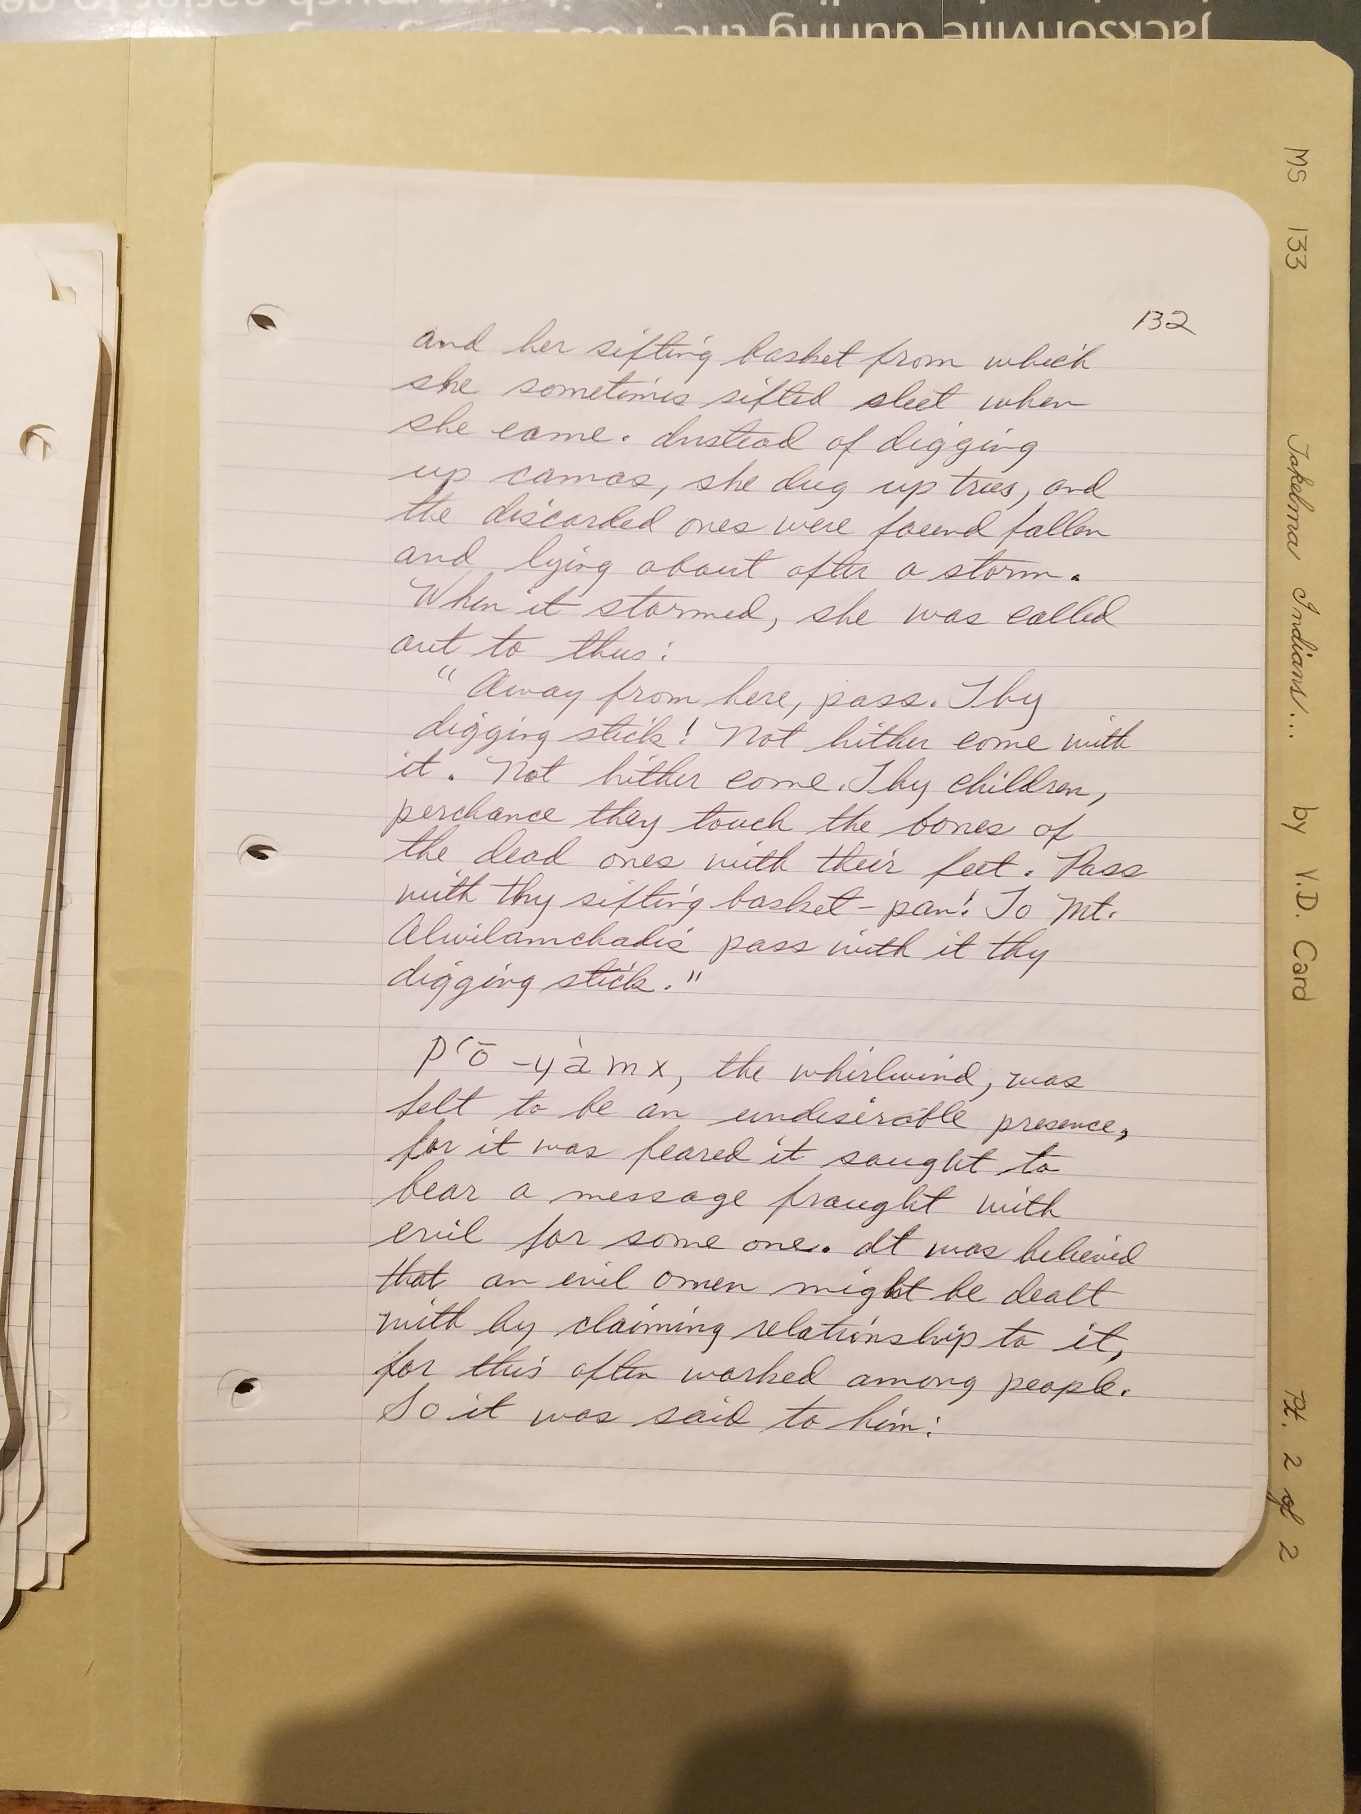 132
and her sifting basket from which
she sometimes sifted sleet when
she came. Instead of digging
up camas, she dug up trees, and
the discarded ones were found fallen
and lying about after a storm.
When it stormed, she was called
out to thus:
"Away from here, pass. Thy
digging stick! Not hither come with
it. Not hither come. Thy children,
perchance they touch the bones of
the dead ones with their feet. Pass
with thy sifting basket-pan! To Mt.
Alwilamchadis pass with it thy
digging stick."
p'ō-yàmx, the whirlwind, was
felt to be an undesirable presence,
for it was feared it sought to
bear a message fraught with
evil for some one. It was believed
that an evil omen might be dealt
with by claiming relationship to it,
for this often worked among people.
So it was said to him:
MS 133 Takelma Indians... by V.D. Card Pt. 2 of 2
Jacksonville during the